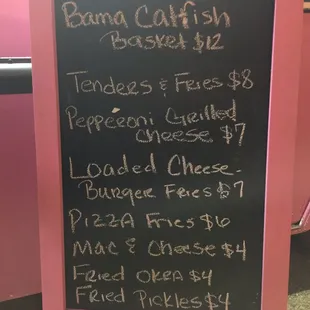 Bama Catfish
Basket $12
Tenders & Fries $8
Pepperoni Grilled
Cheese $7
Loaded Cheese-
Burger Fries $7
Pizza Fries $6
Mac & Cheese $4
Fried Okra $4
Fried Pickles $4